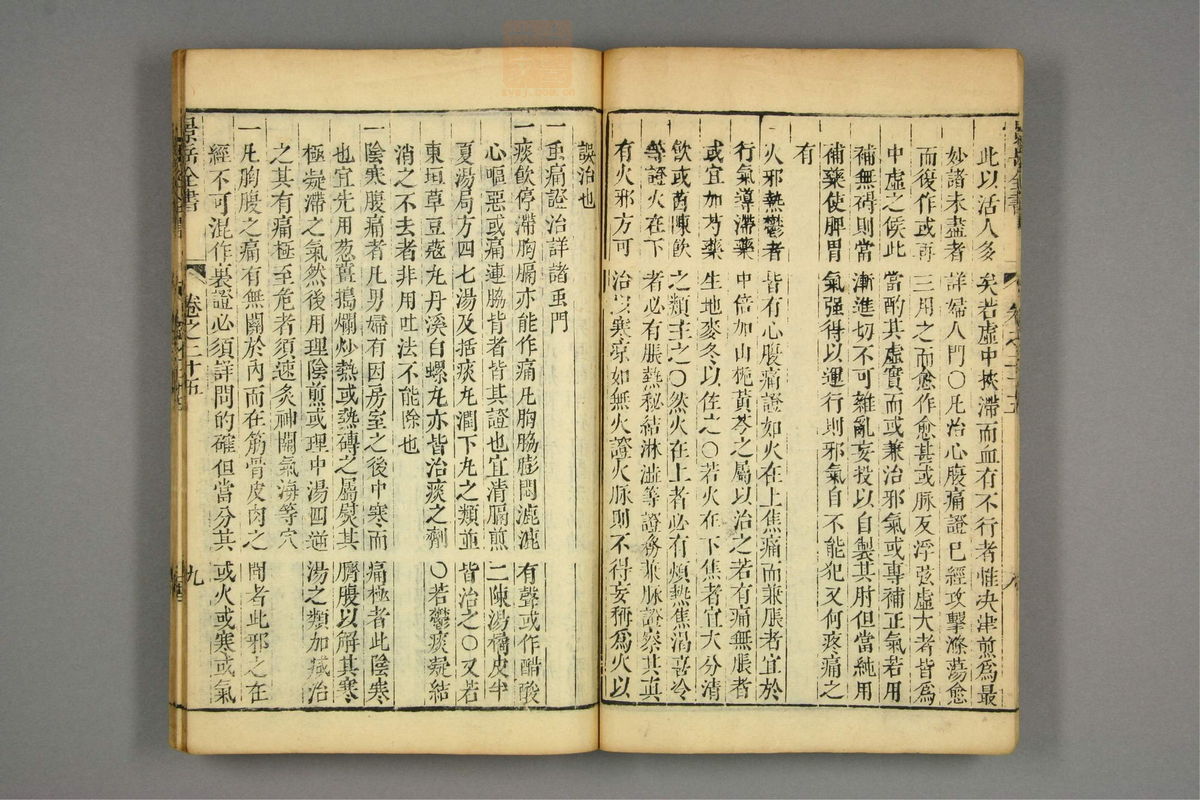 此以活人多矣若虛中挾滯而血有不行者惟决津煎為最
妙諸未盡者詳婦人門○凡治心腹痛證已經攻擊滌蕩愈
而復作或再三用之而愈作愈甚或脉反浮弦虛大者皆為
中虛之候此當酌其虛實而或兼治邪氣或專補正氣若用
補無碍則當漸進切不可雜亂妄投以自製其肘但當純用
補藥使脾胃氣强得以運行則邪氣自不能犯又何疼痛之
有
火邪熱鬱者皆有心腹痛證如火在上焦痛而兼脹者宜於
行氣導滯藥中倍加山梔黃芩之屬以治之若有痛無脹者
或宜加芍藥生地麥冬以佐之○若火在下焦者宜大分清
飲或茵陳飲之類主之○然火在上者必有煩熱焦渴喜冷
等證火在下者必有脹熱秘結淋澁等證務兼脉證察其真
有火邪方可治以寒凉如無火證火脉則不得妄稱為火以
卷之二十五
誤治也
一虫痛證治詳諸虫門
一痰飲停滯胸膈亦能作痛凡胸脇膨悶漉漉有聲或作酸酸
心嘔惡或痛連脇背者皆其證也宜清膈煎二陳湯橘皮半
夏湯局方四七湯及括痰丸潤下丸之類並皆治之○又若
東垣草豆蔻丸丹溪白螺丸亦皆治痰之劑○若鬱痰凝結
消之不去者非用吐法不能除也
一陰寒腹痛者凡男婦有因房室之後中寒而痛極者此陰寒
也宜先用葱薑搗爛炒熱或熱磚之屬熨其臍腹以解其寒
極凝滯之氣然後用理陰煎或理中湯四逆湯之類加減治
之其有痛極至危者須速灸神闕氣海等穴
一凡胸腹之痛有無關於內而在筋骨皮肉之間者此邪之在
經不可混作裏證必須詳問的確但當分其或火或寒或氣
景岳全書
卷之二十五
九